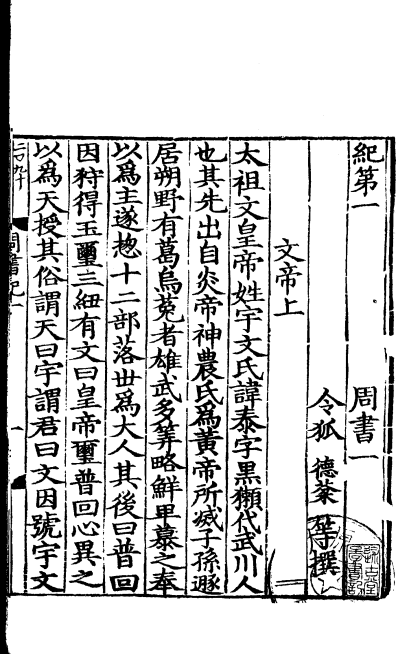 紀第一 周書一
令狐 德棻 等撰
文帝上
太祖文皇帝姓宇文氏諱泰字黑獺代武川人
也其先出自炎帝神農氏爲黃帝所滅子孫遯
居朔野有葛烏菟者雄武多筭略鮮卑慕之奉
以爲主遂揔十二部落丗爲大人其後曰普回
因狩得玉璽三紐有文曰皇帝璽普回心異之
以爲天授其俗謂天曰宇謂君曰文因號宇文
周書紀一
一